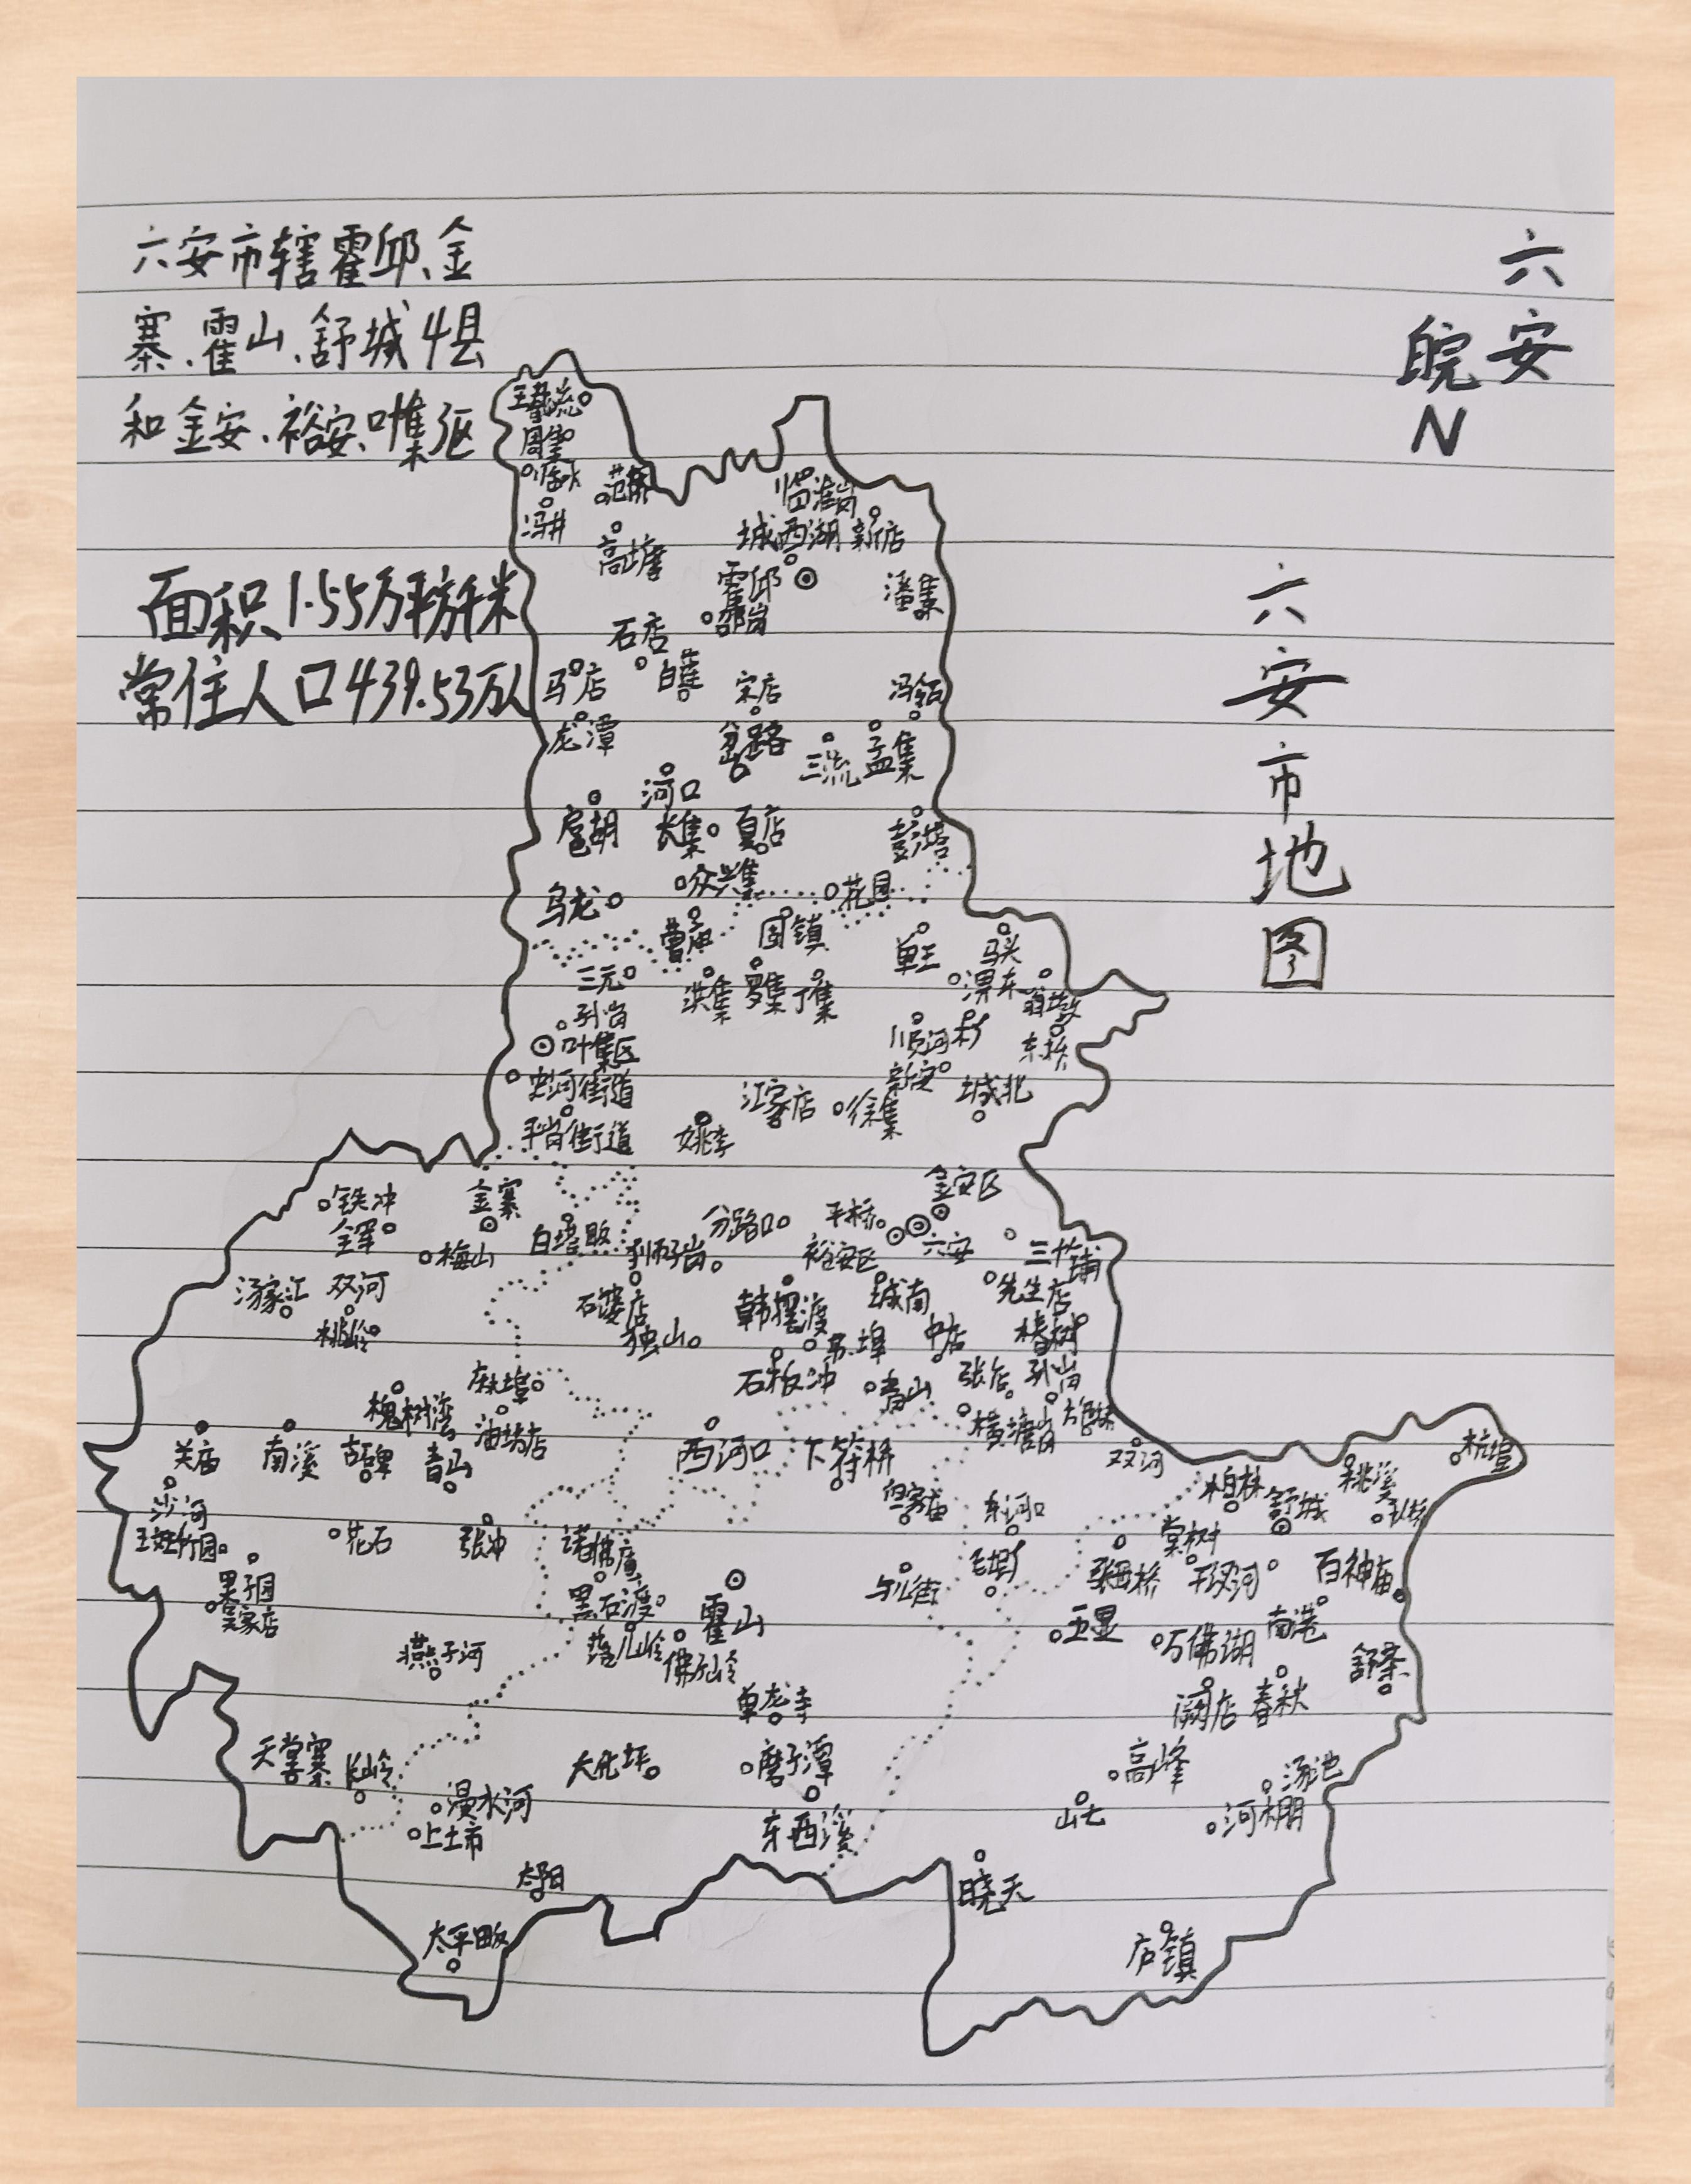 六安市辖霍邱、金
寨、霍山、舒城4县
和金安、裕安、叶集区
面积1.55万平方千米
常住人口439.53万人
六安
皖N
六安市地图
周集
范桥
临淮岗
冯井
高塘
城西湖
新店
霍邱
潘集
邵岗
石店
白莲
马店
宋店
冯瓴
龙潭
岔路
三流
孟集
河口
扈胡
长集
夏店
彭塔
众兴集
花园
乌龙
曹庙
固镇
单王
马头
三元
洪集
罗集
丁集
淠东
翁墩
孙岗
顺河
木厂
东桥
叶集区
史河街道
新安
城北
江家店
徐集
平岗街道
姚李
金安区
铁冲
金寨
全军
分路口
平桥
梅山
白塔畈
狮子岗
裕安区
六安
三十铺
汤家汇
双河
石婆店
韩摆渡
城南
先生店
桃岭
独山
苏埠
中店
椿树
石板冲
张店
孙岗
麻埠
青山
槐树湾
油坊店
横塘岗
关庙
南溪
古碑
青山
西河口
下符桥
双河
杭埠
沙河
但家庙
东河口
柏林
舒城
桃溪
花石
张冲
诸佛庵
棠树
斑竹园
毛坦厂
张母桥
干汊河
百神庙
果子园
吴家店
黑石渡
霍山
与儿街
五显
万佛湖
南港
燕子河
落儿岭
佛子岭
舒茶
单龙寺
阙店
春秋
天堂寨
长岭
大化坪
磨子潭
高峰
汤池
漫水河
山七
河棚
上土市
东西溪
太阳
晓天
太平畈
庐镇